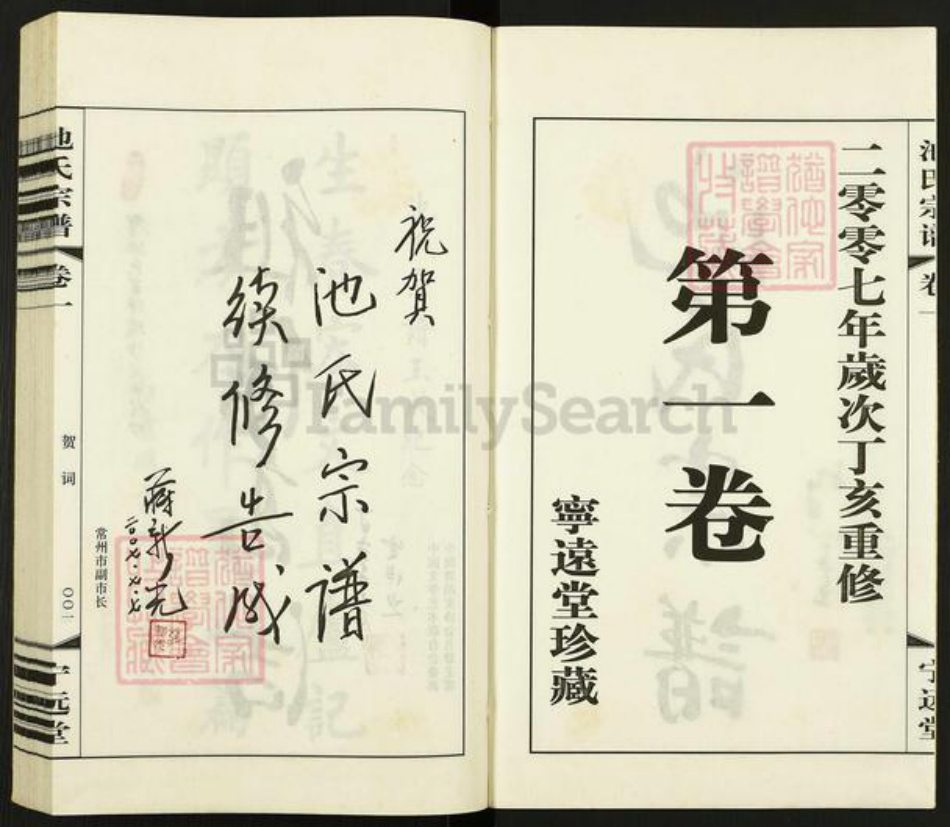 二零零七年歲次丁亥重修
第一卷
寧遠堂珍藏
池氏宗谱
卷一
宁远堂
祝贺
池氏宗譜
续修告成
蒋新光
二〇〇七.七.七
常州市副市长
池氏宗谱
卷一
贺词
〇〇一
宁远堂
FamilySearch